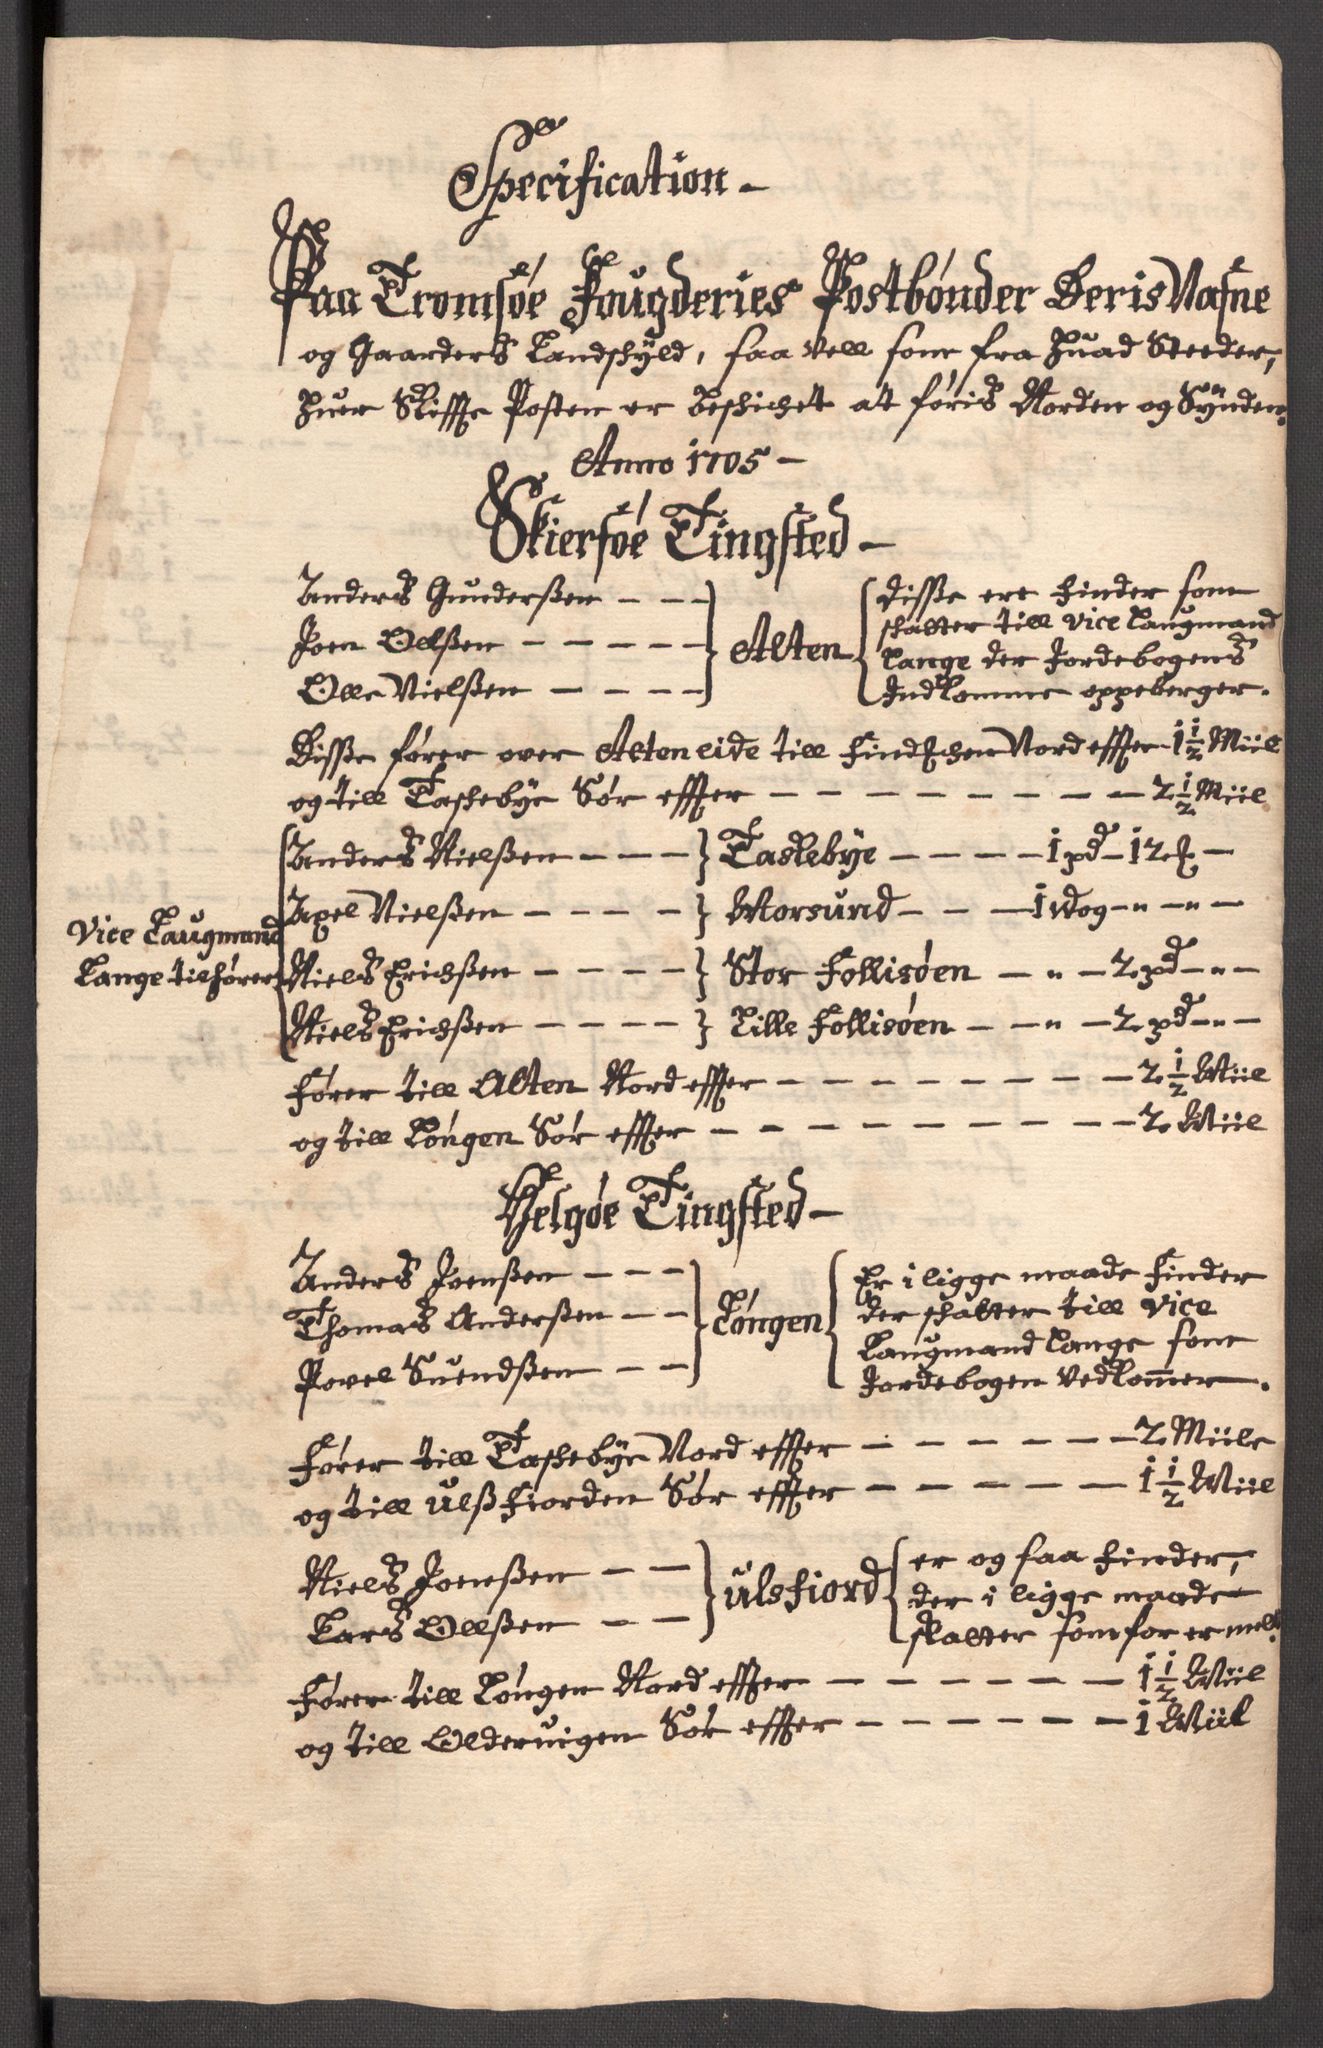 Specification
Paa Tromsøe Fougderies Postbønder Deris Nafne
og Gaarders Landschyld, saa vell som fra huad Steeder,
huer Skiffte Posten er beschichet at føris Norden og Synden.
Anno 1705
Skiersøe Tingsted
Anders Gunderßen
Joen Olßen
Olle Nielßen
Alten
Disße ere Finder som
schatter till Vice Laugmand
Lange der Jordebogens
Indkomme oppeberger.
Disße fører over Alteneide till Nord effter 1 1/2 Miil
og till Taschebye Sør effter 2 1/2 Miil
Vice Laugmand
Lange tilhører
Anders Nielßen Taskebye 1 pd 12
Axel Nielßen Morsund 1 Wog
Niels Erichßen Stor Follisøen 2 pd
Niels Erichßen Lille Follisøen 2 pd
Fører till Alten Nord effter 2 1/2 Miil
og till Løngen Sør effter 2 Miil
Helgøe Tingsted
Anders Joenßen
Thomas Anderßen
Povel Suendßen
Løngen
Er i ligge maade Finder
der schatter till Vice
Laugmand Lange som
Jordebogen Vedkommer.
Fører till Taschebye Nord effter 2 Miile
og till Ulßfiorden Sør effter 1 1/2 Miil
Niels Joenßen
Lars Olßen
Ulsfiord
er og saa Finder,
der i ligge maade
skatter som for er melt.
Fører till Løngen Nord effter 1 1/2 Miil
og till Olderuigen Sør effter 1 Miil